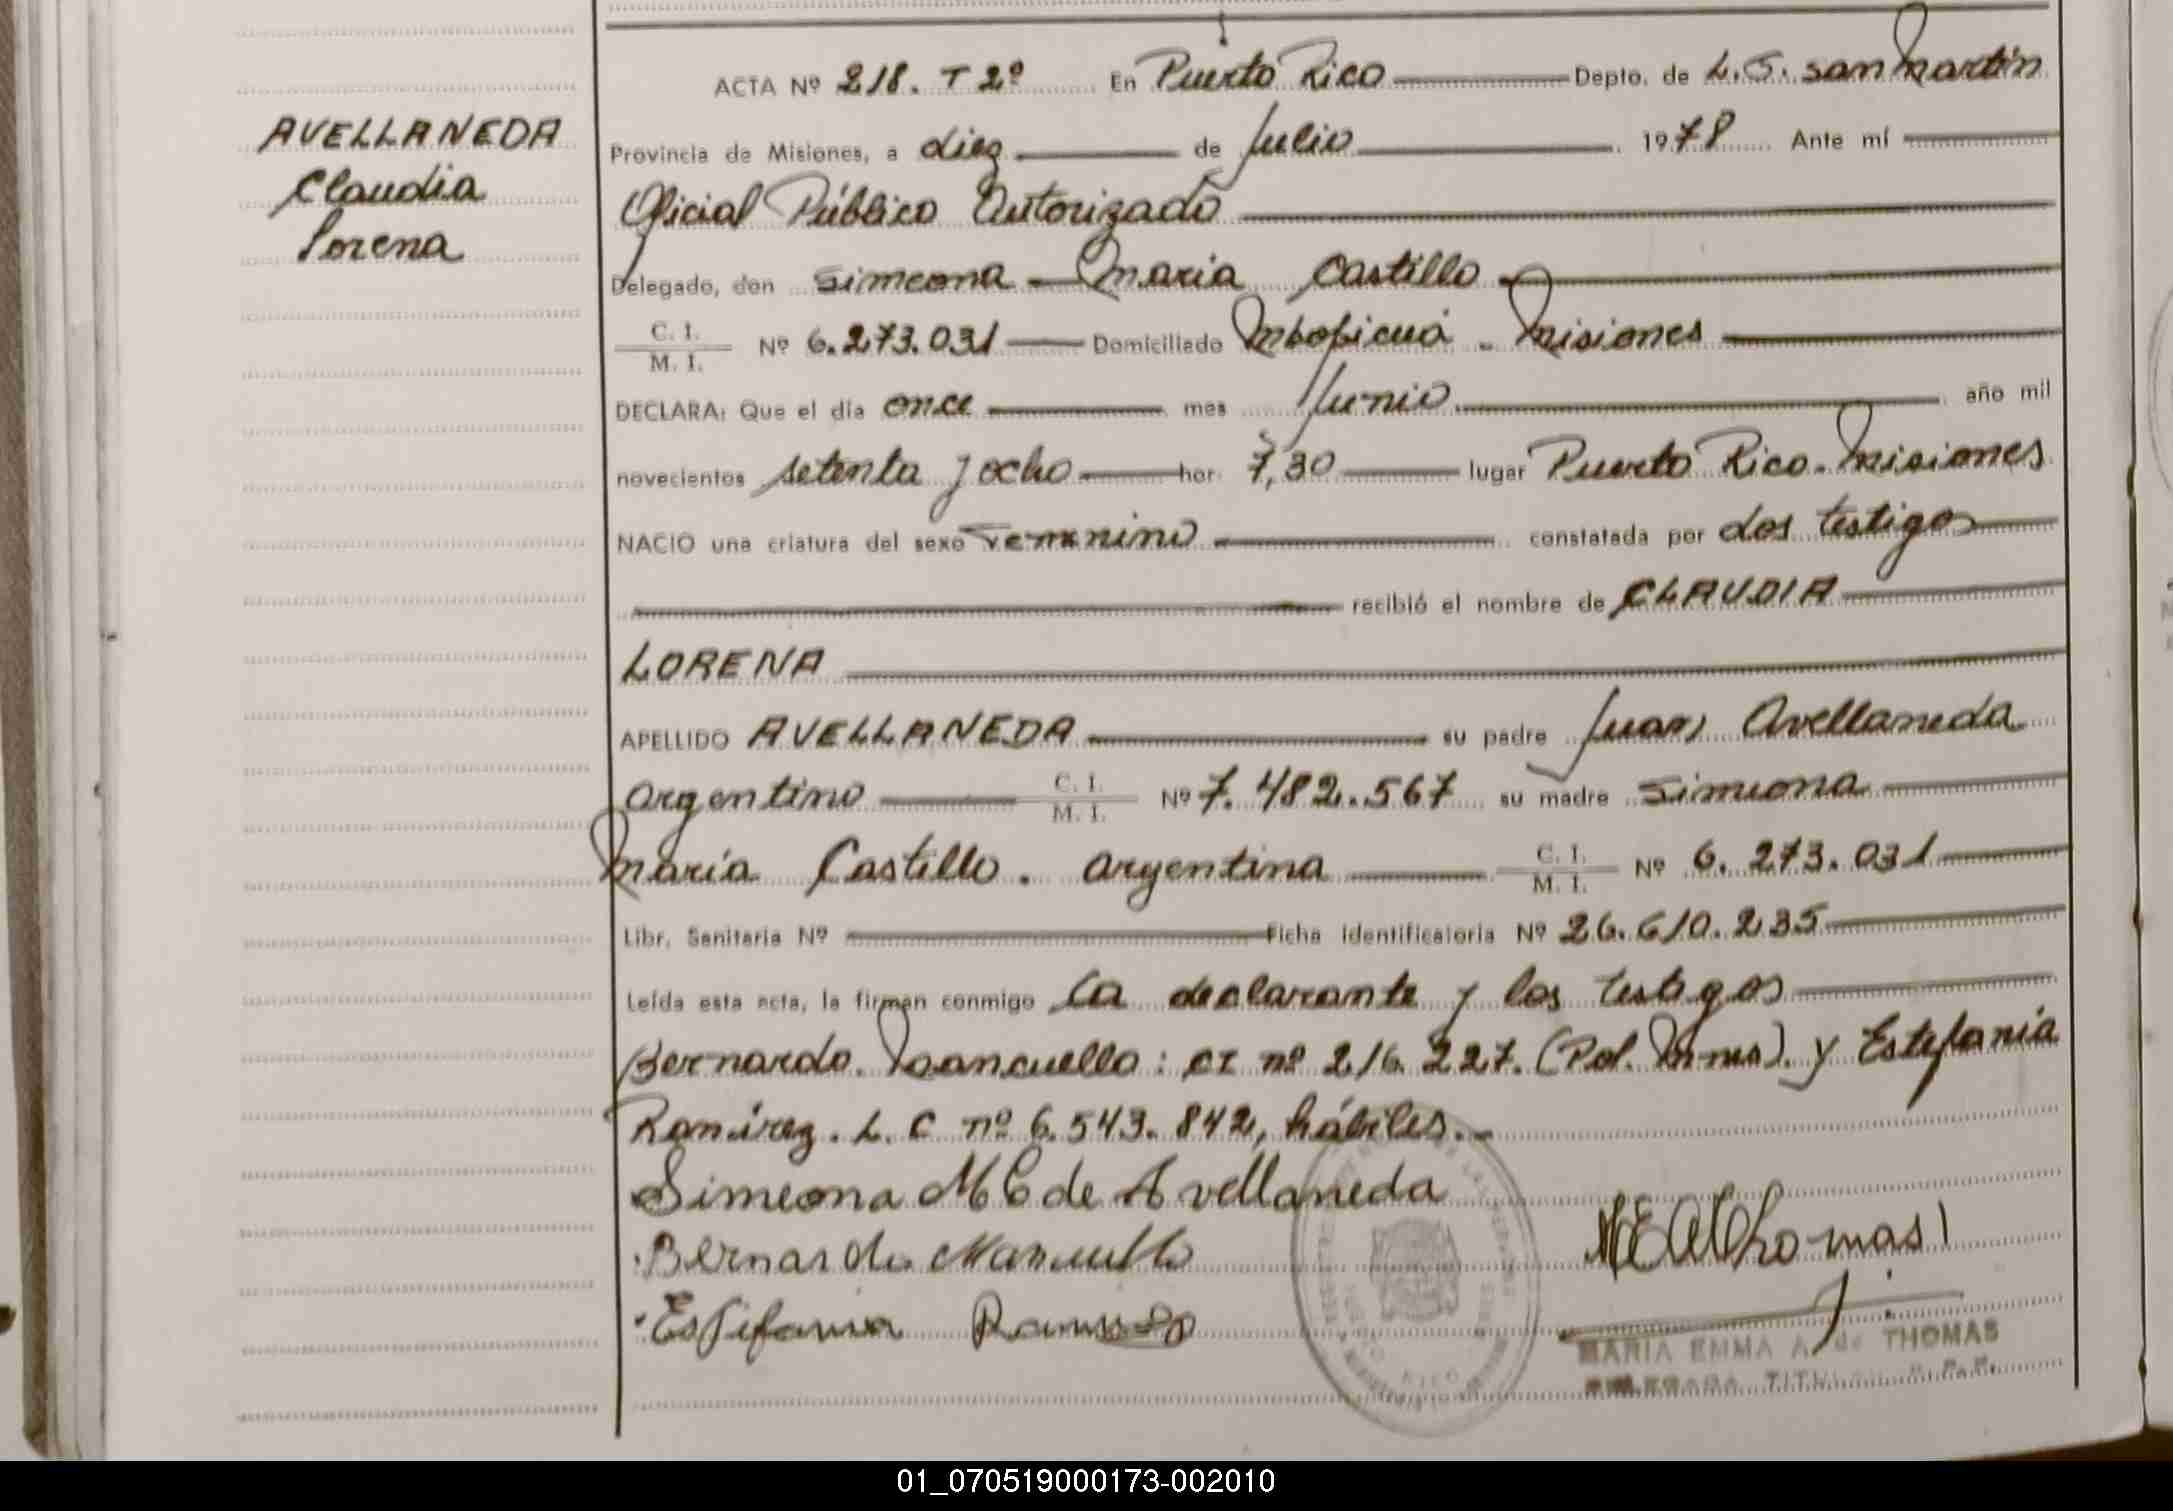 AVELLANEDA
Claudia
Lorena
ACTA Nº 218. T 2º En Puerto Rico Depto. de L. G. San Martín
Provincia de Misiones, a diez de Julio 1978 Ante mí
Oficial Público Autorizado
Delegado, don Simeona María Castillo
C. I. / M. I. Nº 6.273.031 Domiciliado Mbopicuá - Misiones
DECLARA: Que el día once mes Junio año mil
novecientos setenta y ocho hor. 7,30 lugar Puerto Rico - Misiones
NACIO una criatura del sexo Femenino constatada por dos testigos
recibió el nombre de CLAUDIA
LORENA
APELLIDO AVELLANEDA su padre Juan Avellaneda
argentino C. I. / M. I. Nº 7.482.567 su madre Simeona
María Castillo. argentina C. I. / M. I. Nº 6.273.031
Libr. Sanitaria Nº Ficha identificatoria Nº 26.610.235
Leída esta acta, la firman conmigo la declarante y los testigos
Bernardo Mancuello: CI nº 216.227. (Pol. Mnes). y Estefanía
Ramírez. L. C nº 6.543.842, hábiles.-
Simeona M C de Avellaneda
Bernardo Mancuello
Estefania Ramirez
MEAThomas
MARIA EMMA A. de THOMAS
DELEGADA TITULAR
01_070519000173-002010